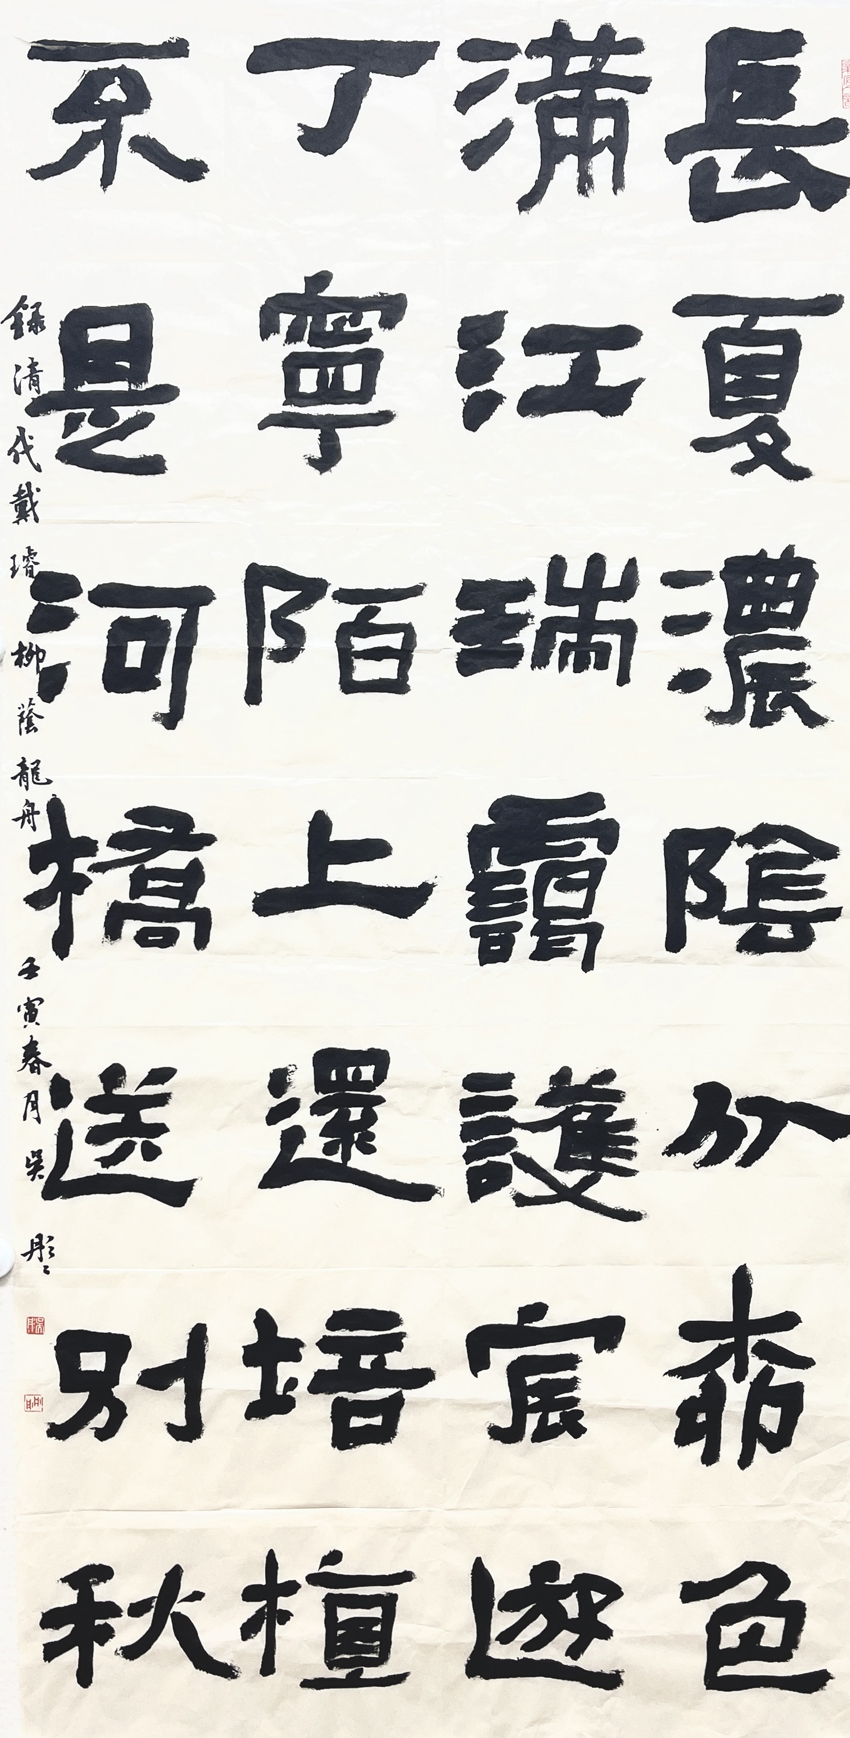 長夏濃陰分柳色
滿江瑞靄護宸遊
丁寧陌上還培植
不是河橋送別秋
錄清代戴璿柳蔭龍舟
壬寅春月吳彤彤